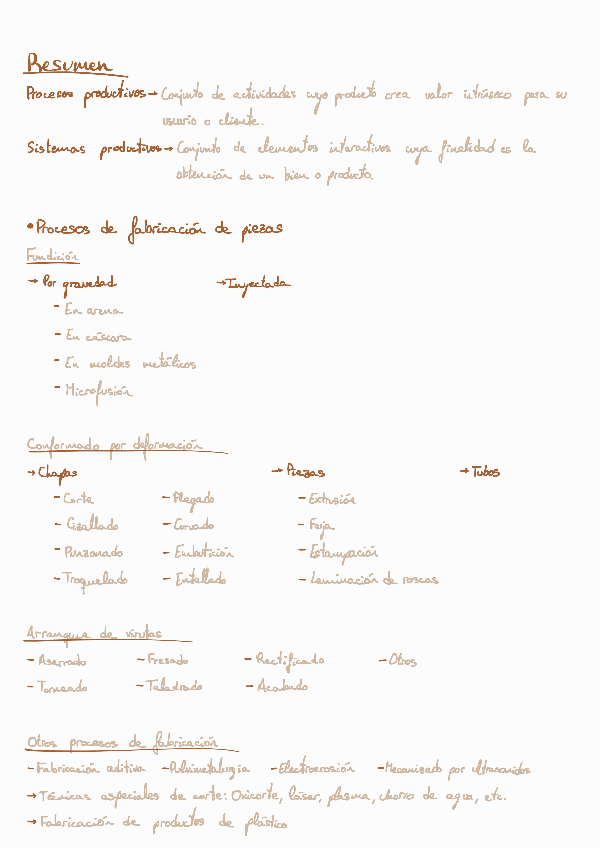 Resumen
Procesos productivos → Conjunto de actividades cuyo producto crea valor intrínseco para su
usuario o cliente.
Sistemas productivos → Conjunto de elementos interactivos cuya finalidad es la
obtención de un bien o producto.
• Procesos de fabricación de piezas
Fundición
→ Por gravedad → Inyectada
- En arena
- En cáscara
- En moldes metálicos
- Microfusión
Conformado por deformación
→ Chapas → Piezas → Tubos
- Corte - Plegado - Extrusión
- Cizallado - Curvado - Forja
- Punzonado - Embutición - Estampación
- Troquelado - Entallado - Laminación de roscas
Arranque de virutas
- Aserrado - Fresado - Rectificado - Otros
- Torneado - Taladrado - Acabado
Otros procesos de fabricación
- Fabricación aditiva - Pulvimetalurgia - Electroerosión - Mecanizado por ultrasonidos
→ Técnicas especiales de corte: Oxicorte, láser, plasma, chorro de agua, etc.
→ Fabricación de productos de plástico